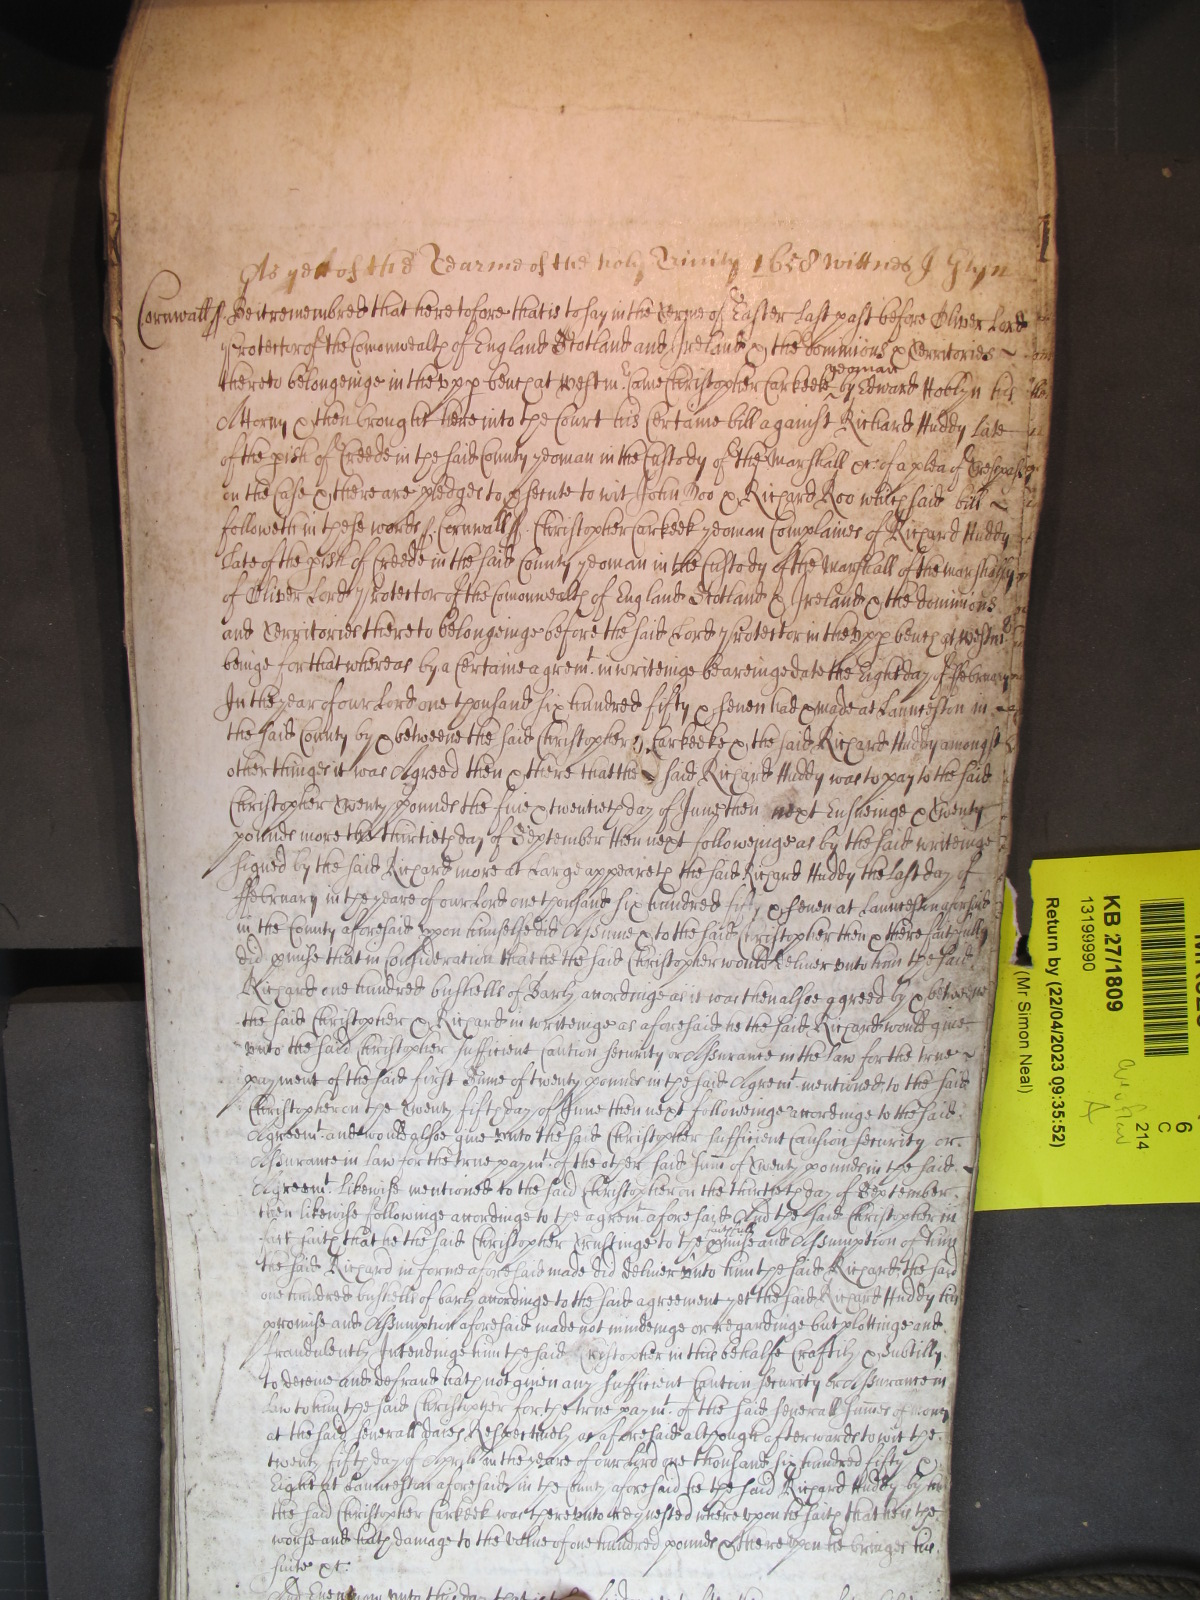 As yet of the Tearme of the holy Trinity 1658 Wittnes J Glyn
Cornwall ss. Be it remembred that heretofore that is to say in the Terme of Easter last past before Oliver Lord
Protector of the Comonwealth of England Scotland and Ireland & the dominions & Territories
thereto belongeinge in the upp bench at Westmr. came Christopher Carkeeke yeoman by Edward Hoblyn his
Attorny & then brought here into the Court his Certaine bill against Richard Huddy late
of the pish of Creede in the said County yeoman in the Custody of the Marshall &c. of a plea of Trespas
on the Case & there are pledges to psecute to wit John Doo & Richard Roo which said bill
followeth in these words ss. Cornwall ss. Christopher Carkeek yeoman Complaines of Richard Huddy
late of the pish of Creede in the said County yeoman in the Custody of the Marshall of the Marshalsy
of Oliver Lord Protector of the Comonwealth of England Scotland & Ireland & the dominions
and Territories thereto belongeinge before the said Lord Protector in the upp bench at Westmr
beinge for that whereas by a Certaine agremt. in writeinge beareinge date the Eight day of ffebruary
In the year of our Lord one thousand six hundred fifty & seven had & made at Launceston in
the said County by & betweene the said Christopher Carkeeke & the said Richard Huddy amongst
other thinges it was Agreed then & there that the said Richard Huddy was to pay to the said
Christopher Twenty pounds the five & twentieth day of June then next Ensueinge & Twenty
pounds more the thirtieth day of September then next followeinge as by the said writeinge
signed by the said Richard more at Large appeareth the said Richard Huddy the last day of
ffebruary in the yeare of our Lord one thousand six hundred fifty & seven at Launceston aforesaid
in the County aforesaid upon himselfe did Assume & to the said Christopher then & there faithfully
did pmise that in Consideration that he the said Christopher would deliver unto him the said
Richard one hundred bushells of Barly accordinge as it was then alsoe agreed by & betweene
the said Christopher & Richard in writeinge as aforesaid he the said Richard would give
unto the said Christopher sufficient Caution security or Assurance in the law for the true
payment of the said first Sume of twenty pounds in the said Agremt. mentioned to the said
Christopher on the Twenty fifth day of June then next followeinge accordinge to the said
Agreemt. and would alsoe give unto the said Christopher sufficient Caution security or
Assurance in law for the true paymt. of the other said sum of Twenty pounds in the said
Agreemt. likewise mentioned to the said Christopher on the thirtieth day of September
then likewise followinge accordinge to the agremt aforesaid And the said Christopher in
fact saith that he the said Christopher Trustinge to the pmise and Assumption of him
the said Richard in forme aforesaid made did deliver unto him the said Richard the said
one hundred bushells of barly accordinge to the said agreement yet the said Richard Huddy his
promise and Assumption aforesaid made not mindeinge or regardinge but plottinge and
fraudulently Intendinge him the said Christopher in this behalfe Craftily & Subtilly
to deceive and defraud hath not given any sufficient Caution security or Assurance in
Law to him the said Christopher for the true paymt. of the said severall summes of Mony
at the said severall daies Respectively as aforesaid although afterwards to wit the
twenty fifth day of Aprill in the yeare of our Lord one thousand six hundred fifty &
Eight at Launceston aforesaid in the County aforesaid he the said Richard Huddy by him
the said Christopher Carkeek was thereunto requested whereupon he saith that he is the
worse and hath damage to the value of one hundred pounds & thereupon he bringes his
suite &c.
And Even now unto this day that is
KB 27/1809
13199990
Return by (22/04/2023 09:35:52)
(Mr Simon Neal)
6
C
214